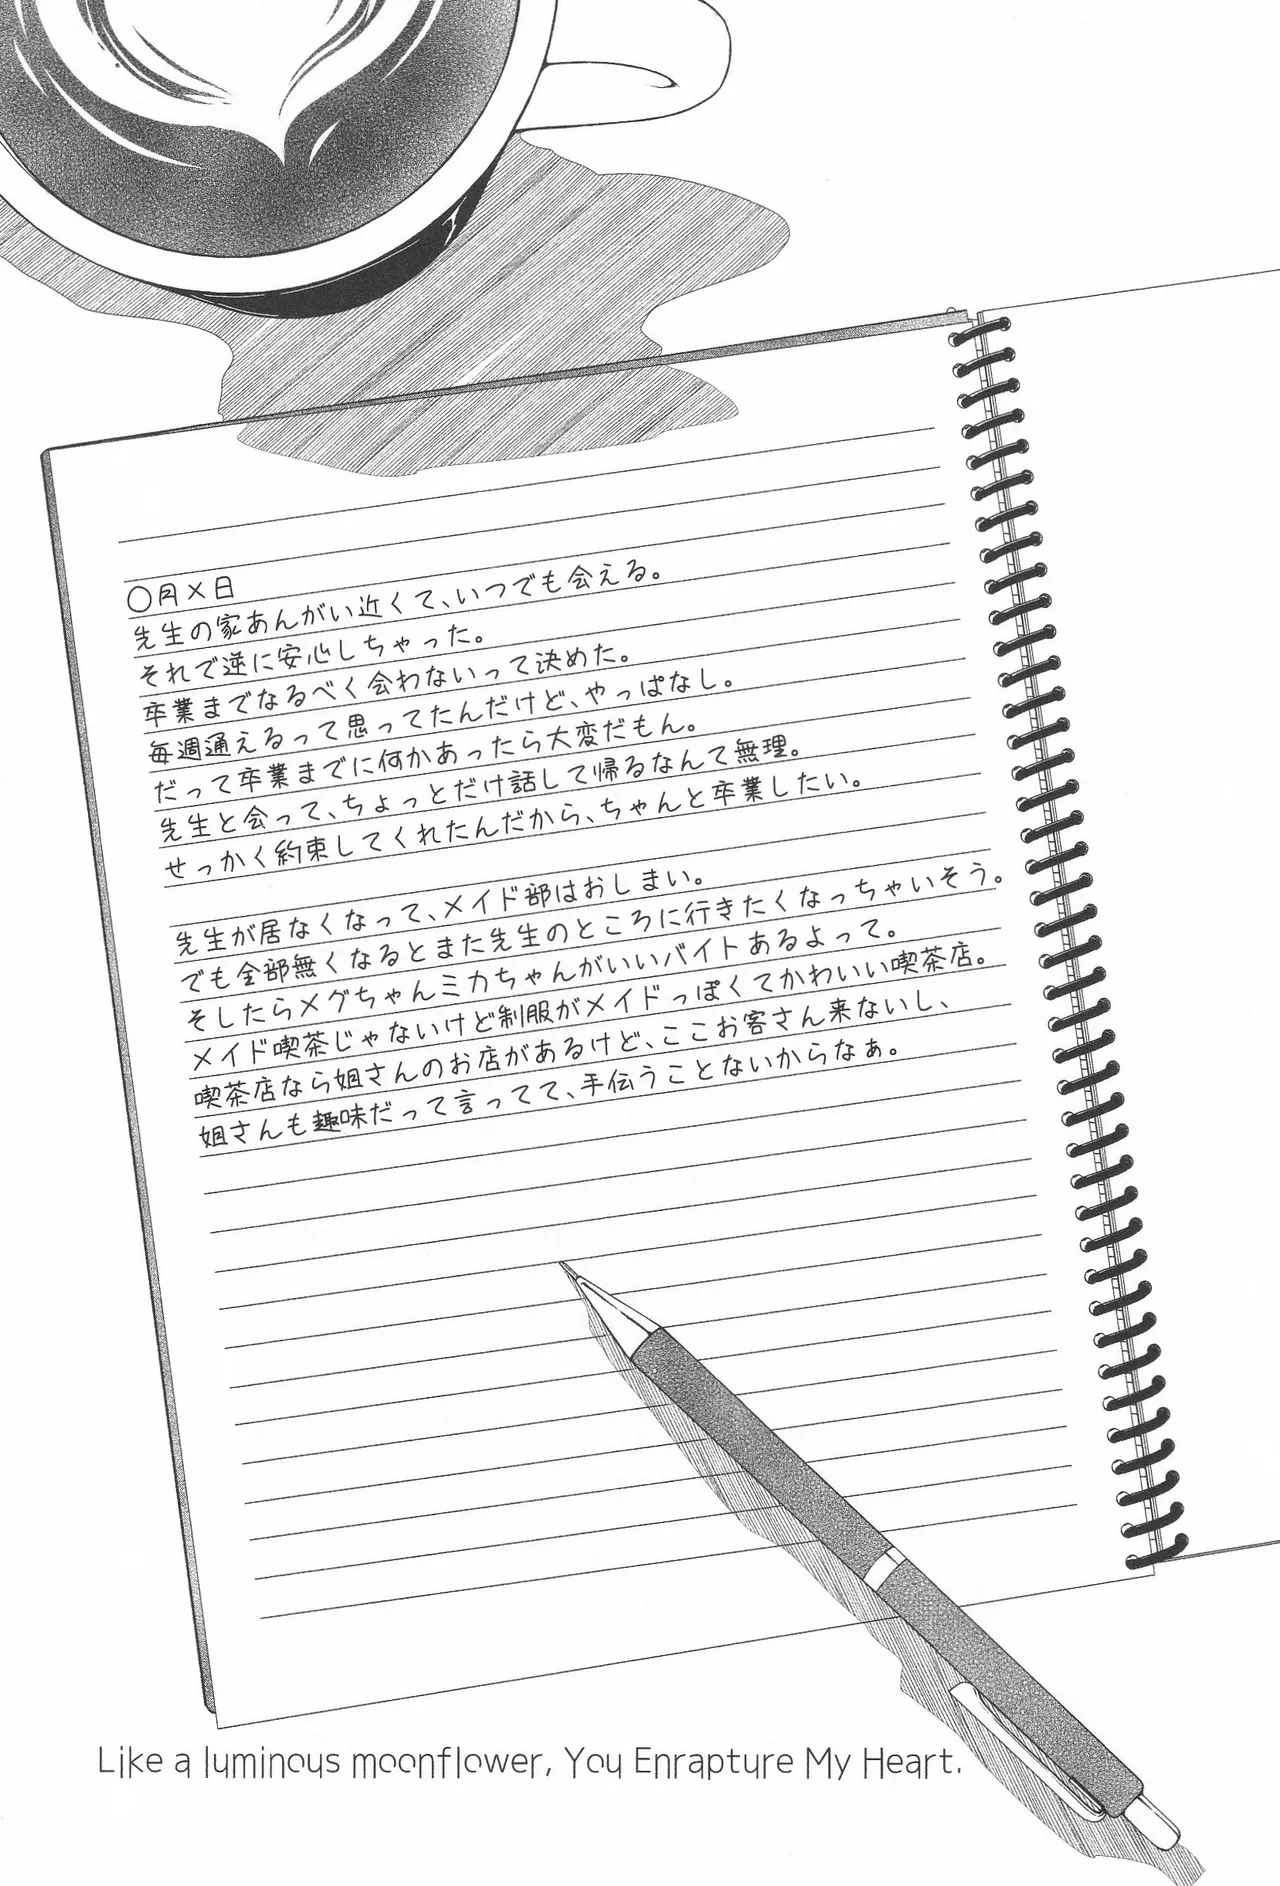 〇月×日
先生の家あんがい近くて、いつでも会える。
それで逆に安心しちゃった。
卒業までなるべく会わないって決めた。
毎週通えるって思ってたんだけど、やっぱなし。
だって卒業までに何かあったら大変だもん。
先生と会って、ちょっとだけ話して帰るなんて無理。
せっかく約束してくれたんだから、ちゃんと卒業したい。
先生が居なくなって、メイド部はおしまい。
でも全部無くなるとまた先生のところに行きたくなっちゃいそう。
そしたらメグちゃんミカちゃんがいいバイトあるよって。
メイド喫茶じゃないけど制服がメイドっぽくてかわいい喫茶店。
喫茶店なら姐さんのお店があるけど、ここお客さん来ないし、
姐さんも趣味だって言ってて、手伝うことないからなぁ。
Like a luminous moonflower, You Enrapture My Heart.